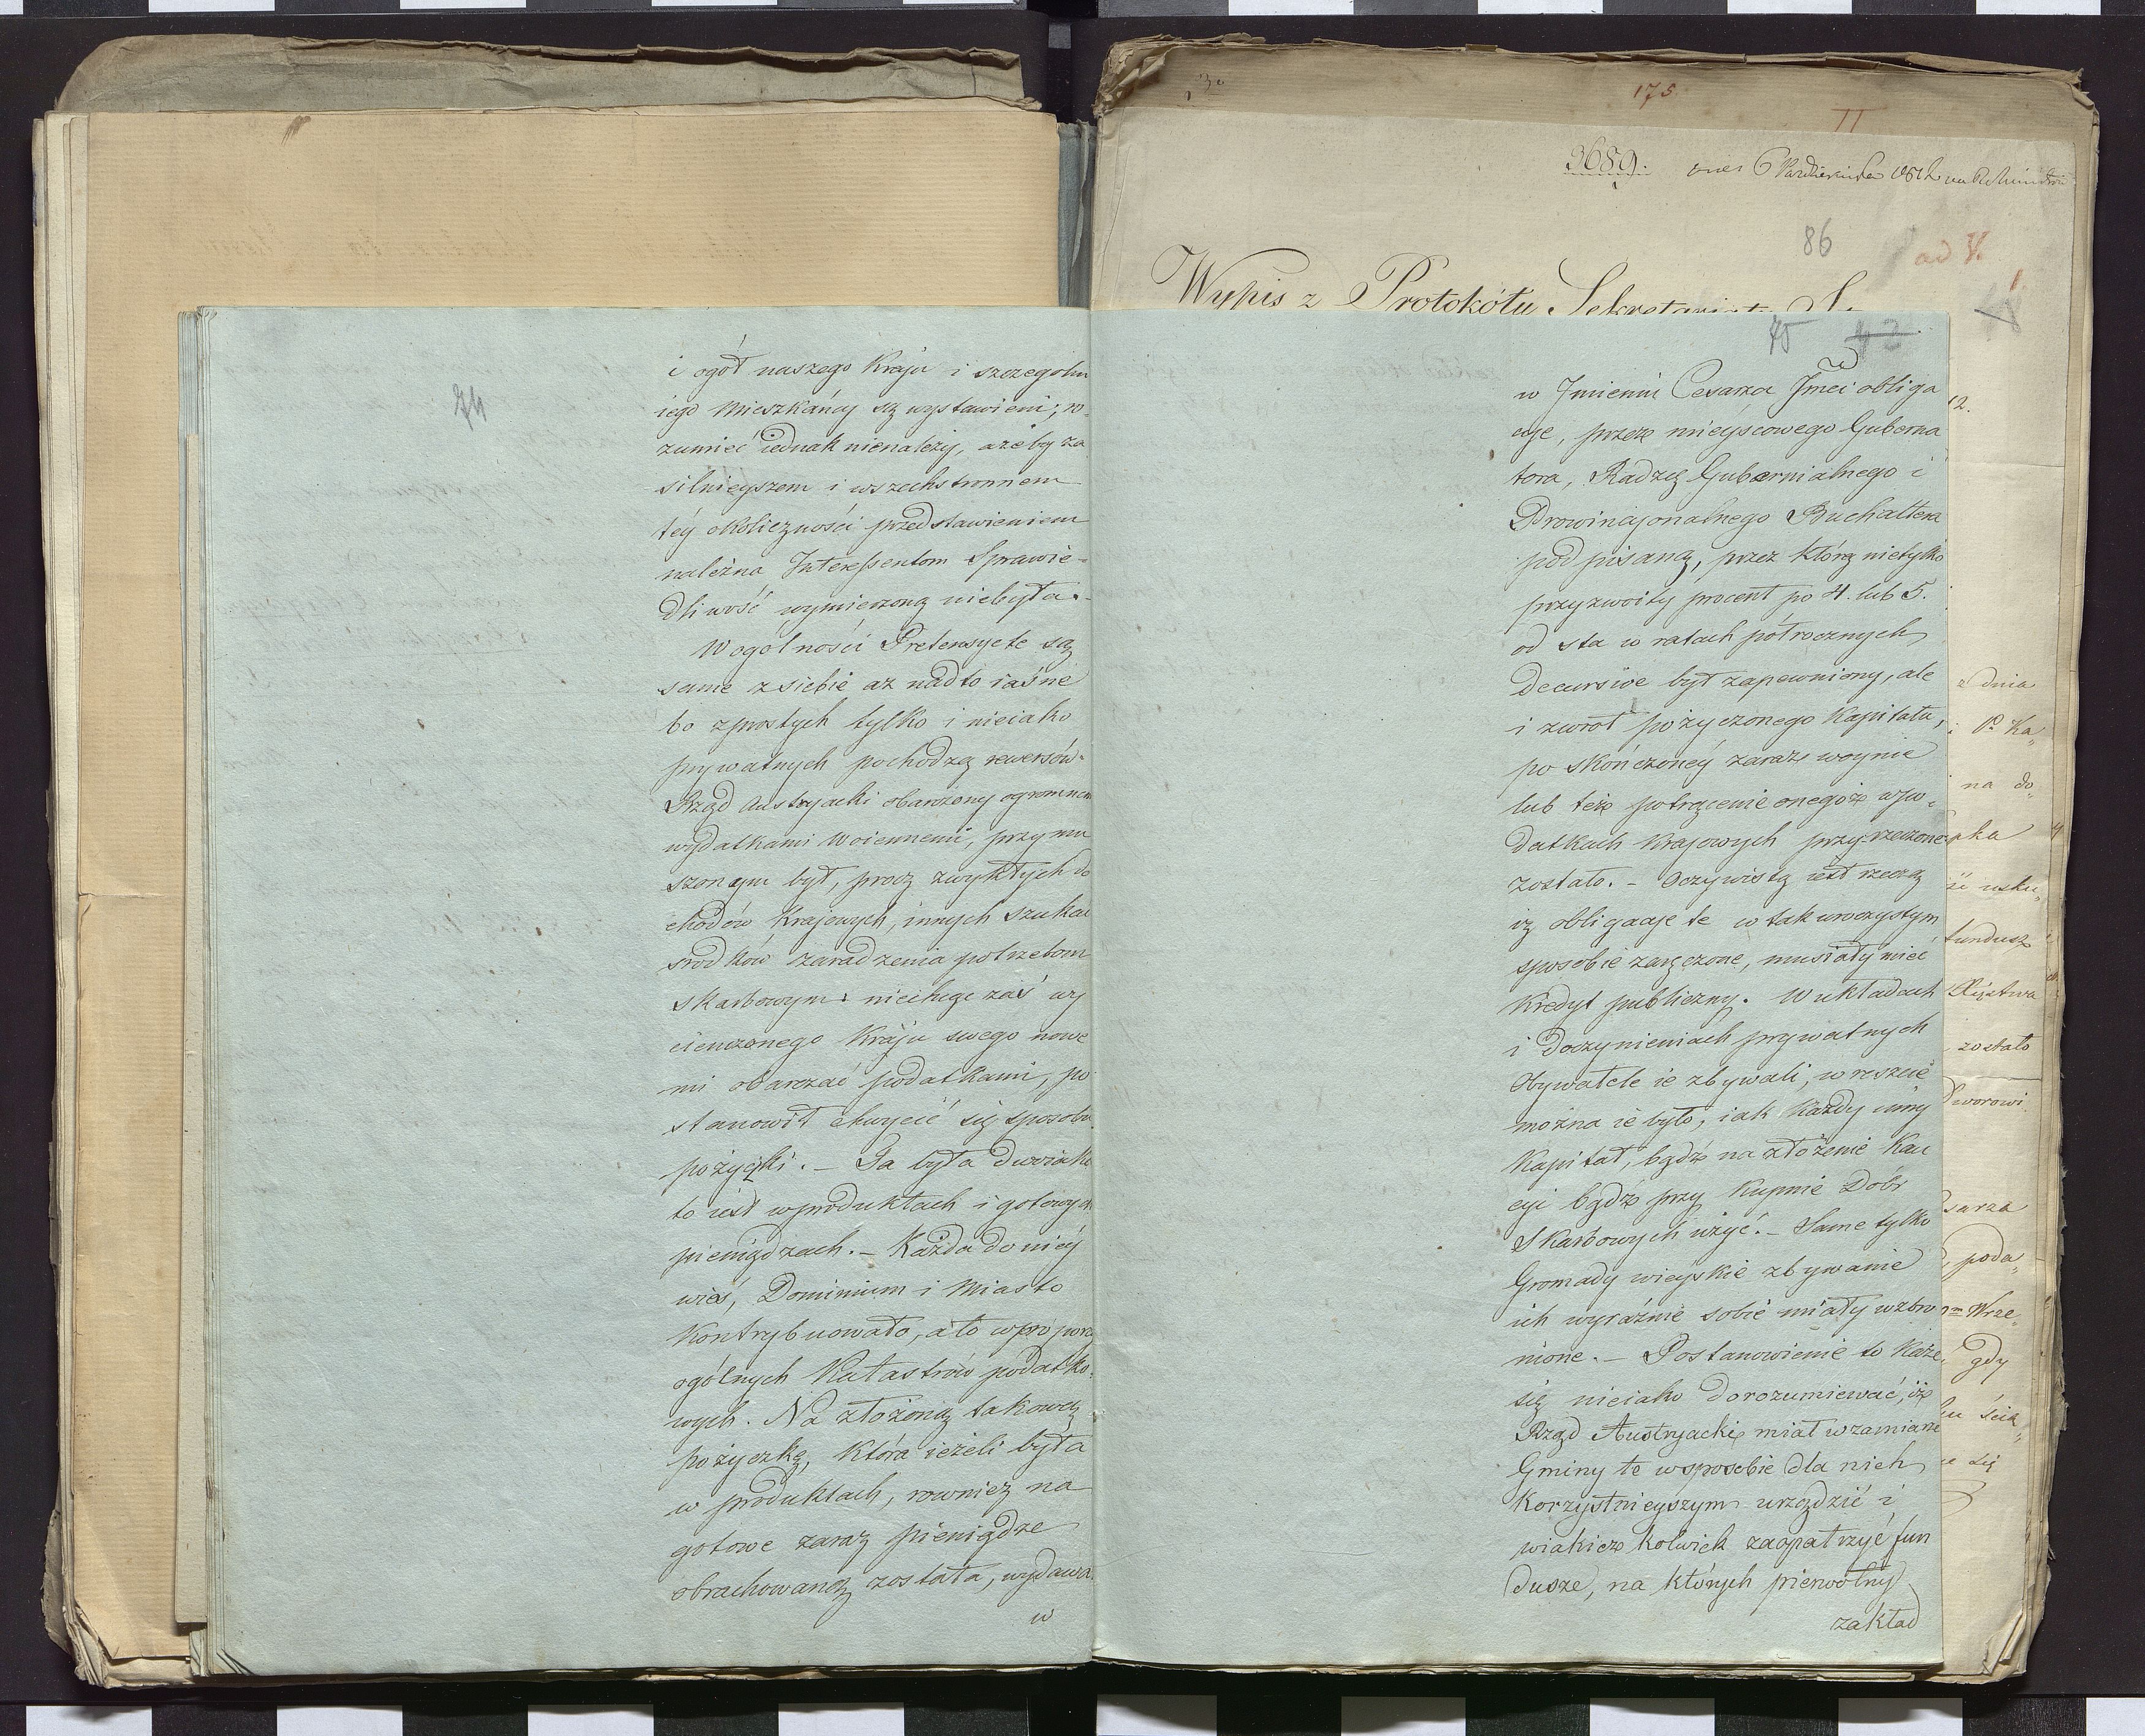 74
i ogół naszego Kraju i szczegolni
iego Mieszkańcy są wystawieni; ro-
zumieć iednak nienależy, ażeby za
silnieyszem i wszechstronnem
téy okoliczności przedstawieniem
należna Interessentom Sprawie-
dliwość wymierzoną niebyła.-
W ogólności Pretensye te są
same z siebie aż nadto iaśne
bo z prostych tylko i nieiako
prywatnych pochodzą rewersów.
Rząd Austryacki obarczony ogromnem
wydatkami Woiennemi, przymu
szonym był, procz zwykłych do
chodów Krajowych, innych szukać
srodków zaradzenia potrzebom
Skarbowym: niechcąc zaś wy
cienczonego Kraju swego nowe
mi obarczać podatkami, po
stanowił chwycić się sposobu
pożyczki. - Ta była dwoiaka
to iest w produktach i gotowych
pieniądzach. - Każda do niey
wieś, Dominium i Miasto
Kontrybuowało, a to w propor
ogólnych Katastrów podatko-
wych. Na złożoną takową
pożyczkę, która ieżeli była
w produktach, rownież na
gotowe zaraz pieniądze
obrachowaną została, wydawa
w
175.
II
3689.
dnia 6 Października 1812
86
ad V.
1
Wypis z Protokółu Sekretariatu
75 42
w Jmieniu Cesarza Jmci obliga
cye, przez mieyscowego Guberna
tora, Radzcę Gubernialnego i
Prowincyonalnego Buchaltera
podpisaną, przez którą nietylko
przyzwoity procent po 4. lub 5.
od sta w ratach półrocznych
Decursive był zapewniony, ale
i zwrot pożyczonego Kapitału,
po skończonéy zaraz woynie
lub też potrącenie onegoż w po-
datkach Krajowych przyrzeczone
zostało. - Oczywistą iest rzeczą
iż obligacye te w tak uroczystym
sposobie zaręczone, musiały mieć
Kredyt publiczny. W układach
i doczynieniach prywatnych
Obywatele ie zbywali, wreszcie
można ie było, iak każdy inny
Kapitał, bądź na złożenie Kau
cyi bądź przy Kupnie Dóbr
Skarbowych użyć. - Same tylko
Gromady wieyskie zbywanie
ich wyraźnie sobie miały wzbro
nione. - Postanowienie to każe
się nieiako dorozumiewać, iż
Rząd Austryacki miał w zamiarze
Gminy te w sposobie dla nich
Korzystnieyszym urządzić i
w iakież kolwiek zaopatrzyć fun
dusze, na których pierwotny
zakład
12.
z dnia
P. Ka„
na do„
pka
usku„
fundusz
Xięstwa
zostało
Dworowi
sarza
poda„
Wrze„
gdy
ścia„
się